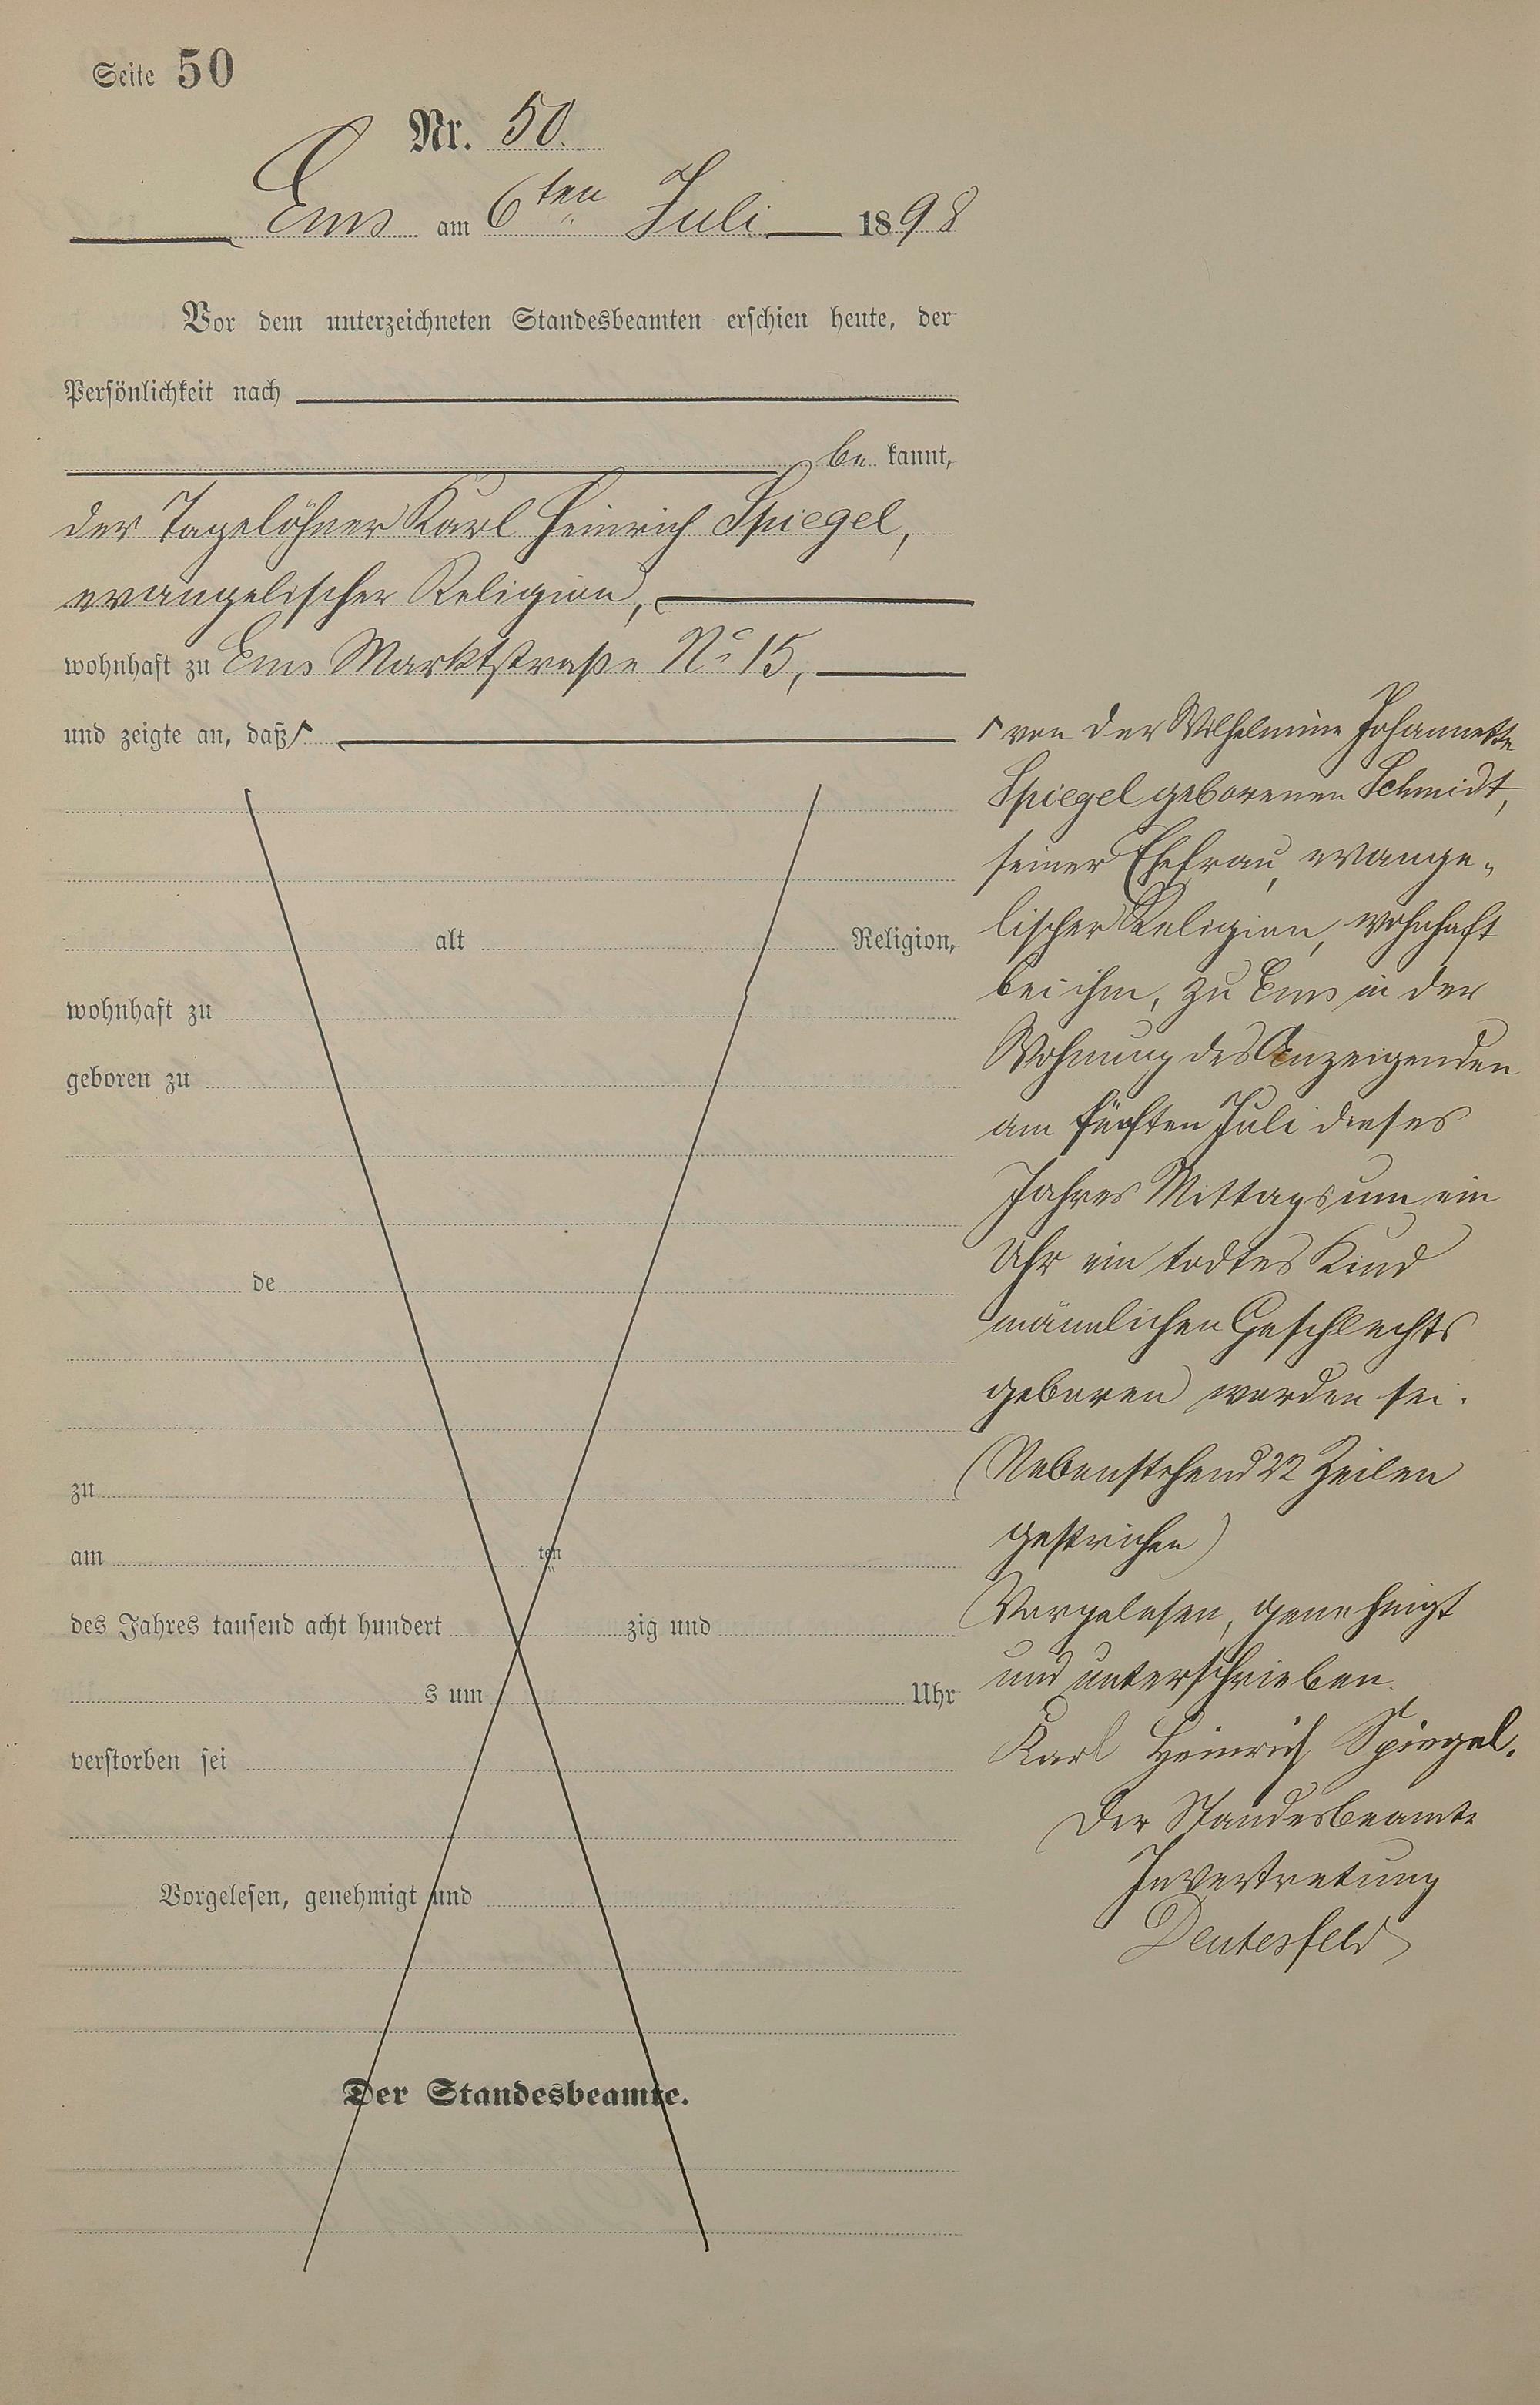 Seite 50
Nr. 50.
Ems am 6ten Juli 1898
Vor dem unterzeichneten Standesbeamten erschien heute, der
Persönlichkeit nach
be kannt,
der Tagelöhner Karl Heinrich Spiegel,
evangelischer Religion,
wohnhaft zu Ems Marktstraße No 15,
und zeigte an, daß
von der Wilhelmine Johannette
Spiegel geborenen Schmidt,
seiner Ehefrau, evange-
lischer Religion, wohnhaft
bei ihm, zu Ems in der
Wohnung des Anzeigenden
am fünften Juli dieses
Jahres Mittags um ein
Uhr ein todtes Kind
männlichen Geschlechts
geboren worden sei.
(Nebenstehend 22 Zeilen
gestrichen)
Vorgelesen, genehmigt
und unterschrieben.
Karl Heinrich Spiegel.
Der Standesbeamte
In Vertretung
Deutesfeld
alt Religion,
wohnhaft zu
geboren zu
de
zu
am ten
des Jahres tausend acht hundert zig und
s um Uhr
verstorben sei
Vorgelesen, genehmigt und
Der Standesbeamte.